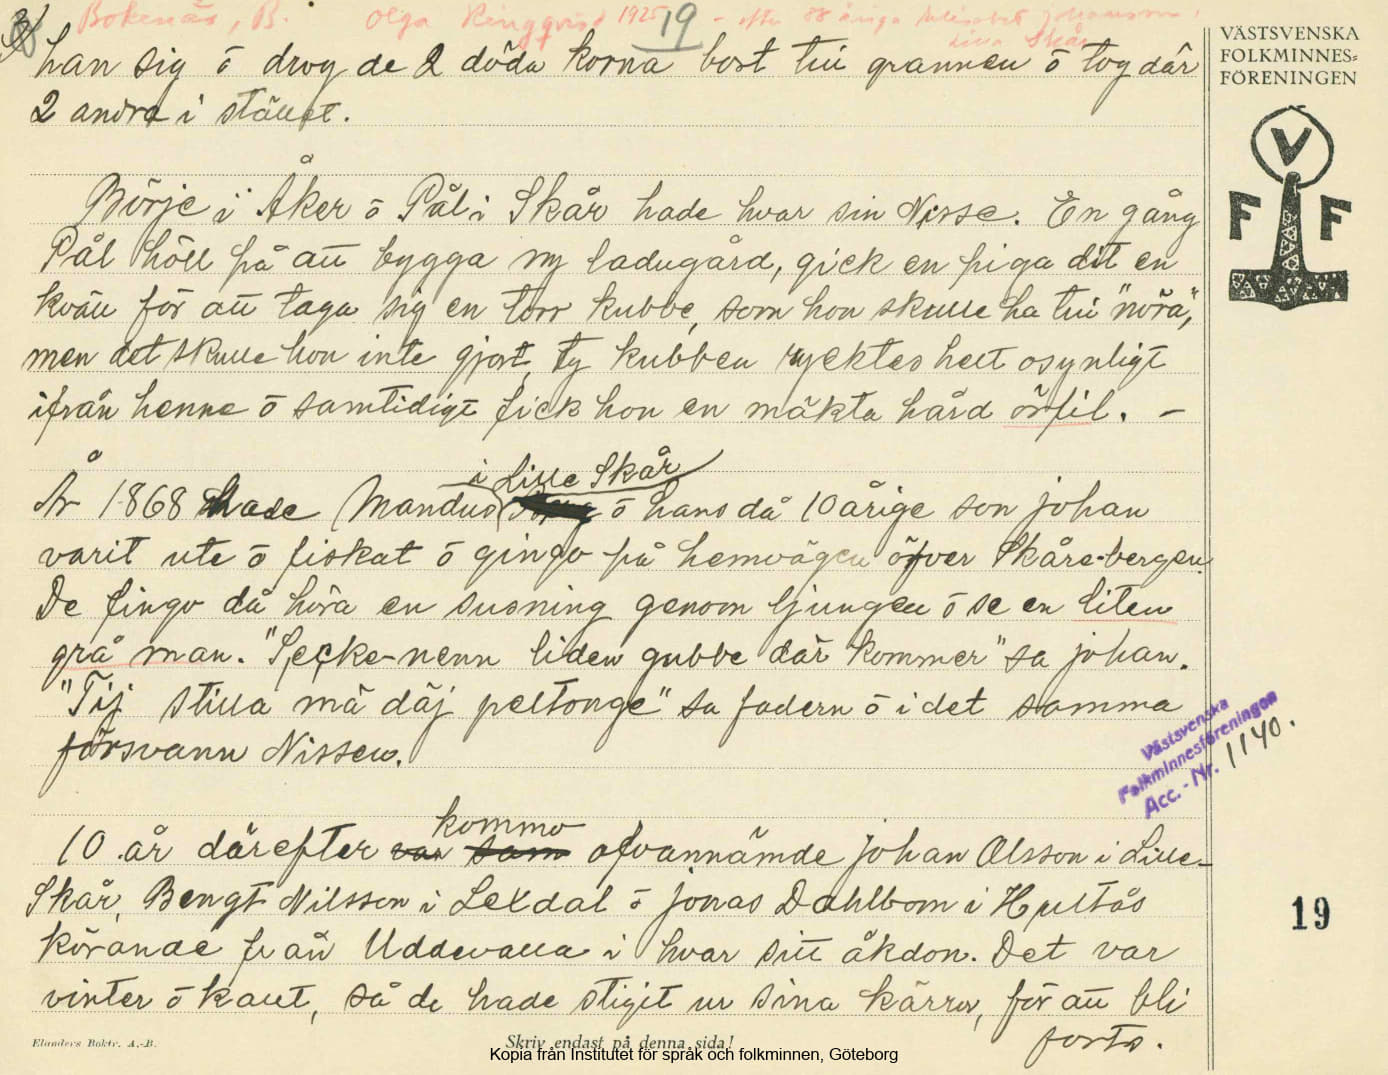 Bokenäs, B. Olga Ringqvist 1925 19 - efter 88 åriga Johansson,
Lilla Skår
han sig ō drog de 2 döda korna bort till grannen ō tog där
2 andra i stället.
Börje i Åker ō Pål i Skår hade hvar sin Nisse. En gång
Pål höll på att bygga ny ladugård, gick en piga dit en
kväll för att taga sig en torr kubbe, som hon skulle ha till "nöra",
men det skulle hon inte gjort, ty kubben rycktes helt osynligt
ifrån henne ō samtidigt fick hon en mäkta hård örfil. –
År 1868 hade Mandus i Lille Skår ō hans då 10 årige son Johan
varit ute ō fiskat ō gingo på hemvägen öfver Skåre-bergen.
De fingo då höra en susning genom ljungen ō se en liten
grå man. "Secke-nenn liden gubbe där kommer" sa Johan.
"Tij stilla mä däj peltonge" sa fadern ō i det samma
försvann Nissen.
10 år därefter kommo ofvannämde Johan Olsson i Lille-
Skår, Bengt Nilsson i Lexdal ō Jonas Dahlbom i Hultås
körande från Uddevalla i hvar sitt åkdon. Det var
vinter ō kallt, så de hade stigit ur sina kärror, för att bli
forts.
VÄSTSVENSKA
FOLKMINNES=
FÖRENINGEN
V
F F
Västsvenska
Folkminnesföreningen
Acc.-Nr. 1140.
19
Elanders Boktr. A.-B.
Skriv endast på denna sida!
Kopia från Institutet för språk och folkminnen, Göteborg